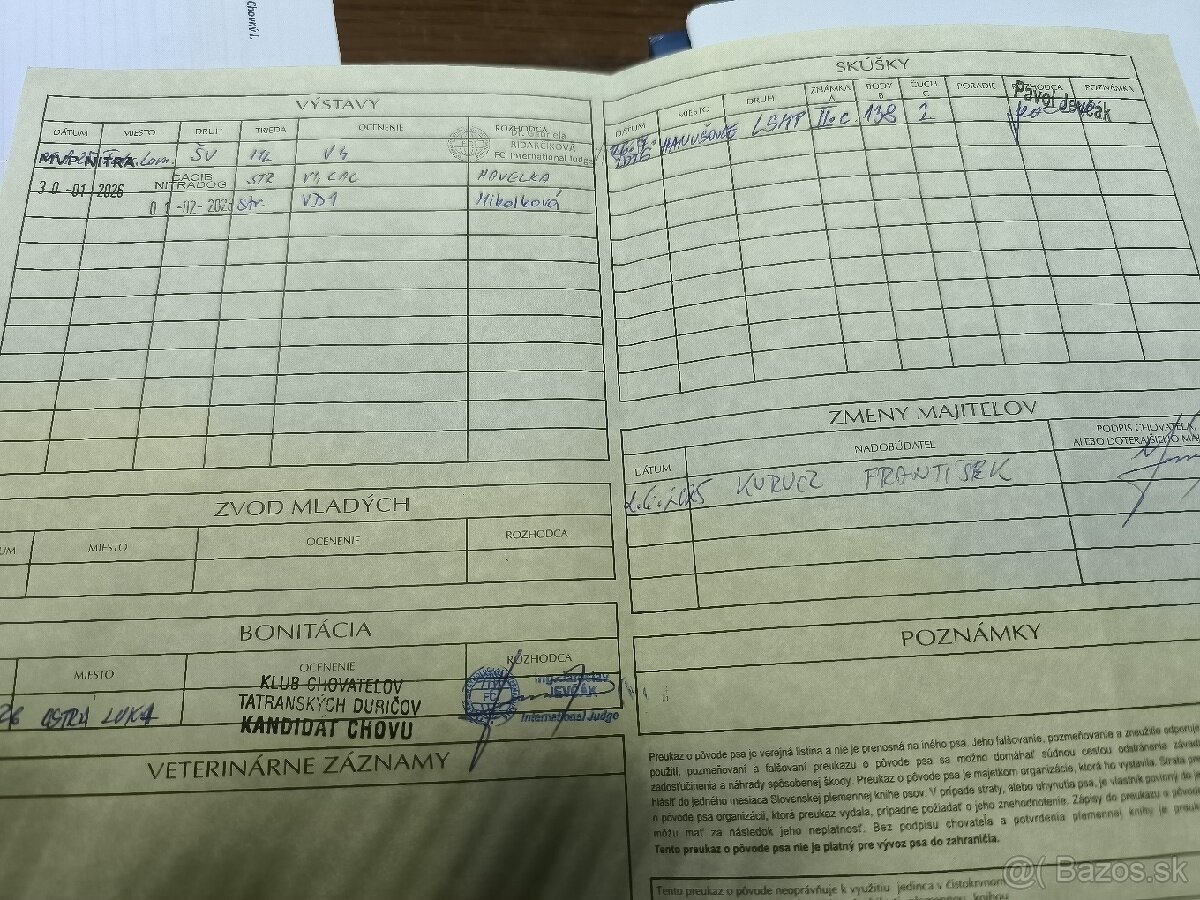 Chovný J.
VÝSTAVY
DÁTUM MIESTO DRUH TRIEDA OCENENIE ROZHODCA
MVP NITRA ŠV V4 RIDARČÍKOVÁ
FCI International Judge
30 -01 2026 CACIB NITRADOG STR V1, CAC HAVELKA
01 -02- 202 Str. VD1 Mikolková
ZVOD MLADÝCH
MIESTO OCENENIE ROZHODCA
BONITÁCIA
MIESTO OCENENIE ROZHODCA
OSTRÁ LÚKA KLUB CHOVATEĽOV
TATRANSKÝCH DURIČOV
KANDIDÁT CHOVU
JEVČÁK
International Judge
VETERINÁRNE ZÁZNAMY
SKÚŠKY
DÁTUM MIESTO DRUH ZNÁMKA A BODY B ČUCH C PORADIE ROZHODCA POZNÁMKA
HANUŠOVCE II. c. 138 2 Pavol Jevčák
ZMENY MAJITEĽOV
DÁTUM NADOBÚDATEĽ PODPIS CHOVATEĽA,
ALEBO DOTERAJŠIEHO
2.6.2025 KURUCZ FRANTIŠEK
POZNÁMKY
Preukaz o pôvode psa je verejná listina a nie je prenosná na iného psa. Jeho falšovanie, pozmeňovanie a zneužitie odporuje
použití, pozmeňovaní a falšovaní preukazu o pôvode psa sa možno domáhať súdnou cestou odstránenia závad
zadosťučinenia a náhrady spôsobenej škody. Preukaz o pôvode psa je majetkom organizácie, ktorá ho vystavila. Strata
hlásiť do jedného mesiaca Slovenskej plemennej knihe psov. V prípade straty, alebo uhynutia psa, je vlastník povinný
o pôvode psa organizácii, ktorá preukaz vydala, prípadne požiadať o jeho znehodnotenie. Zápisy do preukazu o pôvode
môžu mať za následok jeho neplatnosť. Bez podpisu chovateľa a potvrdenia plemennej knihy je
Tento preukaz o pôvode psa nie je platný pre vývoz psa do zahraničia.
Tento preukaz o pôvode neoprávňuje k využitiu jedinca v čistokrvnom
plemennou knihou
@( Bazos.sk